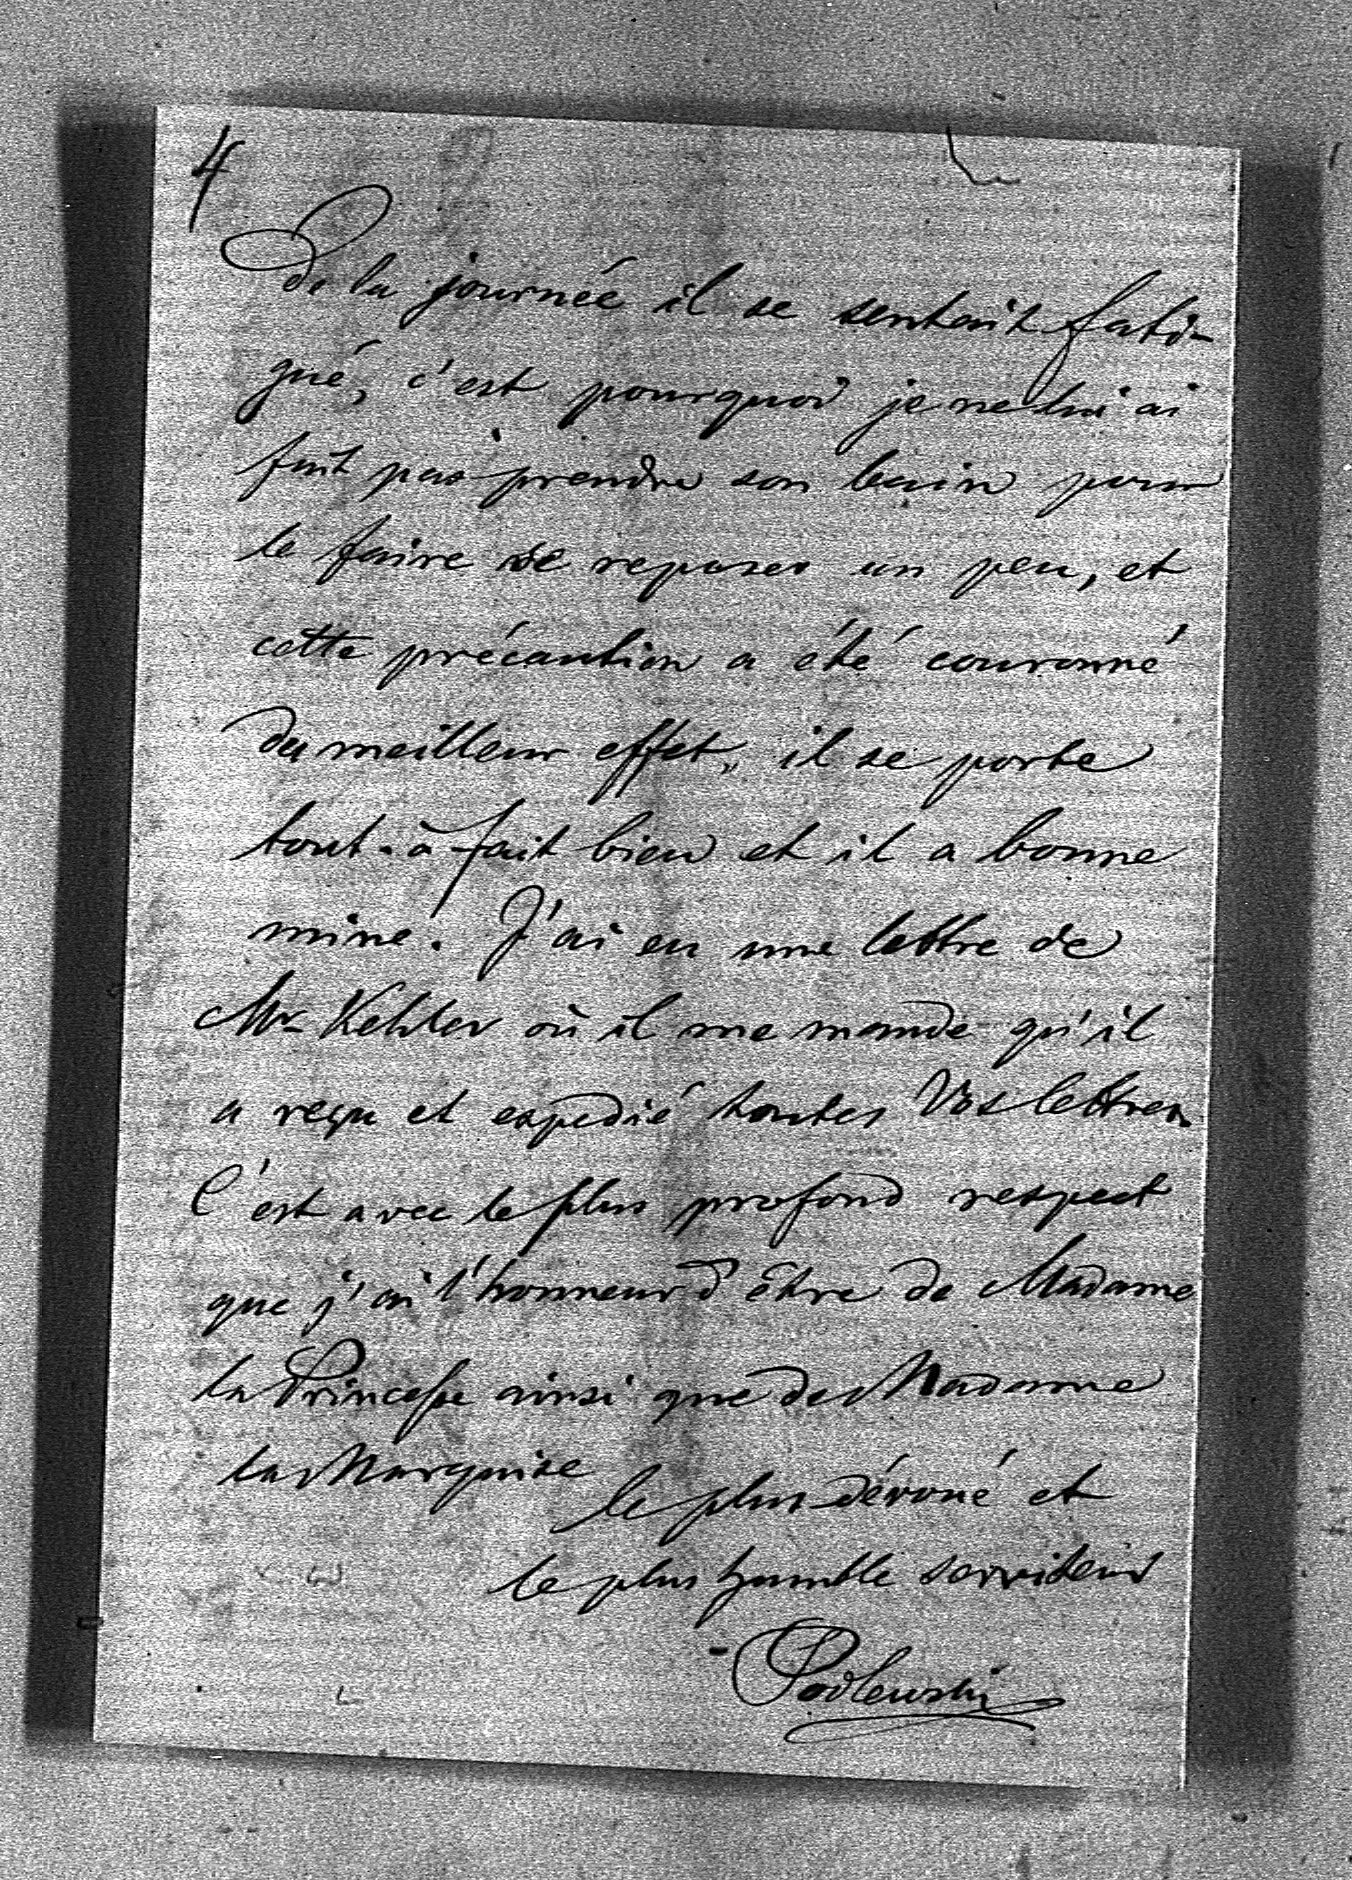 4
de la journée il se sentait fati-
gué, c'est pourquoi je ne lui ai
fait pas prendre son bain pour
le faire se reposer un peu, et
cette précaution a été couronné
du meilleur effet, il se porte
tout-à-fait bien et il a bonne
mine. J'ai eu une lettre de
Mr Kehler où il me mande qu'il
a reçu et expedié toutes Vos lettres.
C'est avec le plus profond respect
que j'ai l'honneur d'être de Madame
la Princesse ainsi que de Madame
la Marquise
le plus dévoué et
le plus humble serviteur
Podlewski